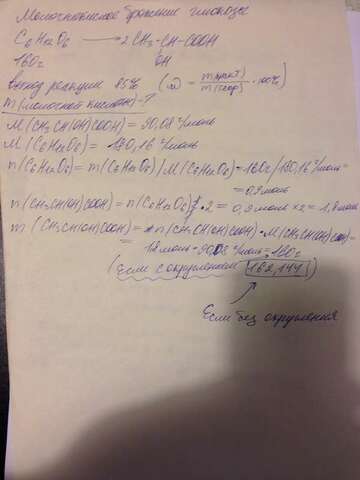 Молочнокислое брожение глюкозы
C₆H₁₂O₆ → 2CH₃-CH-COOH
160г OH
выход реакции 85% (ω = m(практ)/m(теор) · 100%)
m(молочной кислоты) - ?
M(CH₃CH(OH)COOH) = 90,08 г/моль
M(C₆H₁₂O₆) = 180,16 г/моль
n(C₆H₁₂O₆) = m(C₆H₁₂O₆)/M(C₆H₁₂O₆) = 160г/180,16 г/моль =
= 0,9 моль
n(CH₃CH(OH)COOH) = n(C₆H₁₂O₆) · 2 = 0,9 моль × 2 = 1,8 моль
m(CH₃CH(OH)COOH) = n(CH₃CH(OH)COOH) · M(CH₃CH(OH)COOH)
= 1,8 моль · 90,08 г/моль = 160г
(Если с округлением 162,144)
Если без округления